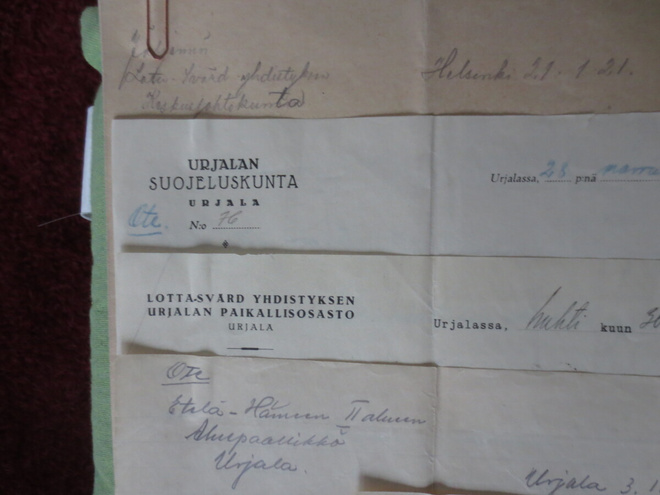 Lotta-Svärd yhdistyksen Helsinki 21.1.21.
Keskusjohtokunta
URJALAN
SUOJELUSKUNTA
URJALA
Urjalassa, 28 p:nä
Ote. N:o 76
LOTTA-SVÄRD YHDISTYKSEN
URJALAN PAIKALLISOSASTO
URJALA
Urjalassa, huhti kuun
Ote
Etelä-Hämeen II alueen
Aluepäällikkö
Urjala.
Urjala 3.1